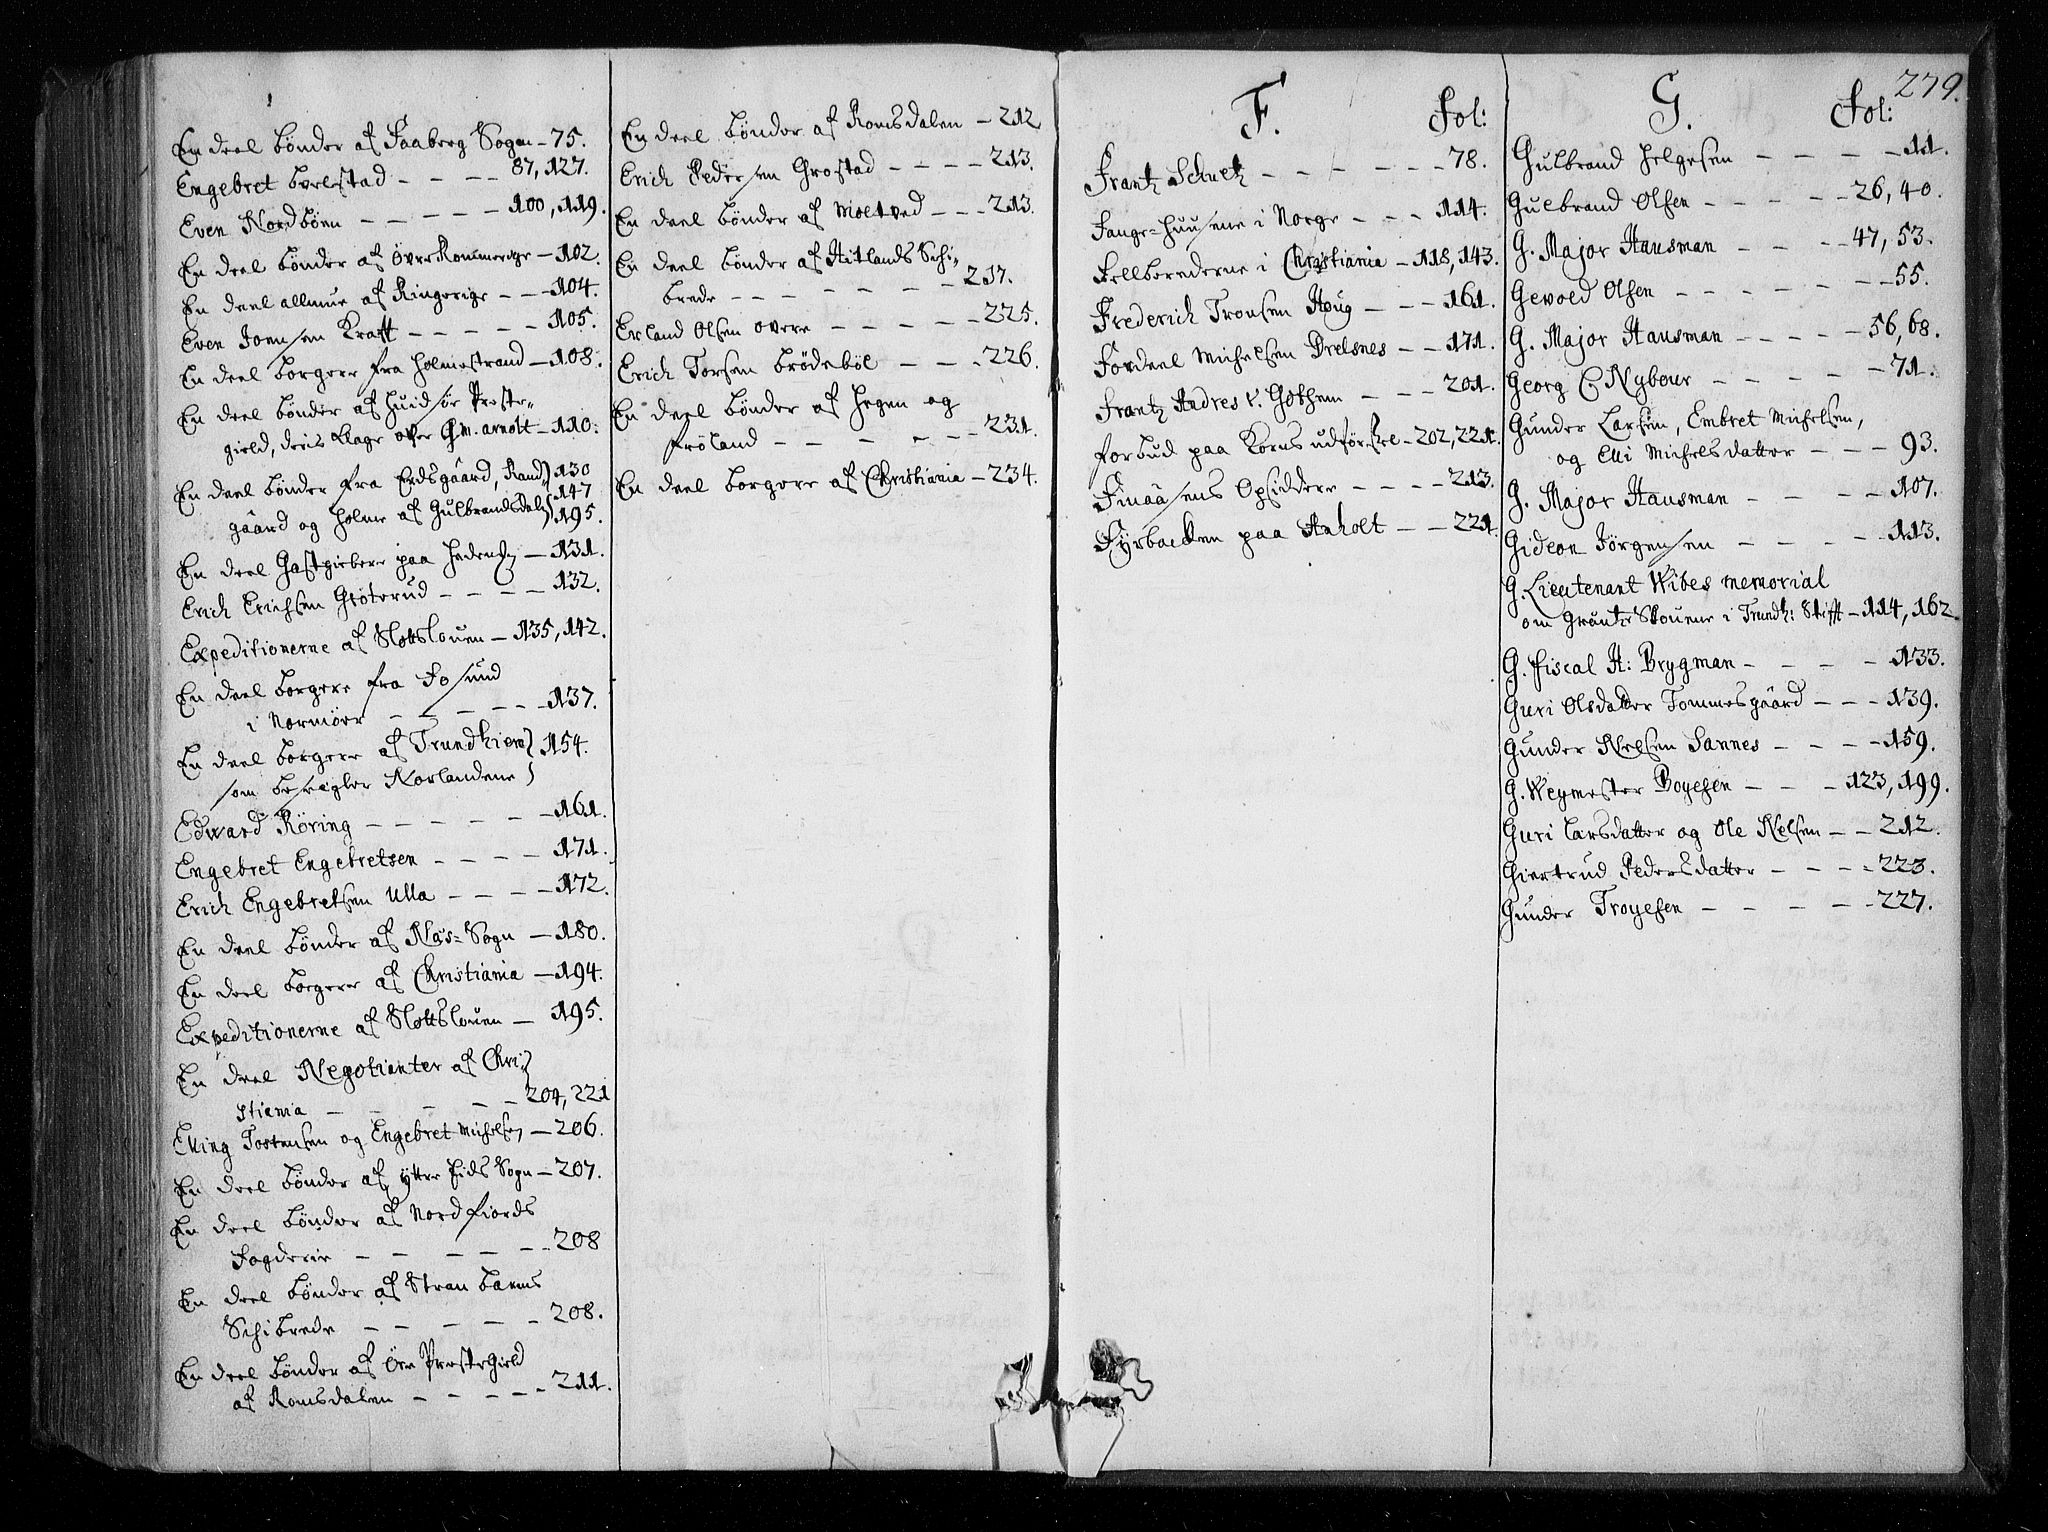 En deel bønder af Faaberg Sogn – 75.
Engebret – – – – 87, 127.
Even Nordbøen – – – – – 100, 119.
En deel bønder af Øvre Rommerige – 102.
En deel allmue af Ringerige – – – 104.
Even Joensen Krafft – – – – – 105.
En deel borgere fra Holmestrand – 108.
En deel bønder af Præste-
gield, deris Klage over Gm. arnolt – 110.
En deel bønder fra Rand- } 130
gaard og Holme af Gulbrandsdalen } 147
195.
En deel Gastgiebere paa – 131.
Erich Erichsen Gröterud – – – – 132.
Expeditionerne af Slottslouen – 135, 142.
En deel borgere fra Fosund
i Normøer – – – – – – 137.
En deel borgere af Trundhiem } 154.
som beseigler Norlandene }
Edward Röring – – – – – – 161.
Engebret Engebretsen – – – – 171.
Erich Engebretsen Ulla – – – – 172.
En deel bønder af Næs-Sogn – 180.
En deel borgere af Christiania – 194.
Expeditionerne af Slottslouen – 195.
En deel Negotianter af Chri- }
stiania – – – – – 204, 221
Elling Tostensen og Engebret Michelsen – 206.
En deel bønder af ytter Eids Sogn – 207.
En deel bønder af Nordfiords
Fogderie – – – – – – 208
En deel bønder af Stran barms
Schibrede – – – – – 208.
En deel bønder af Præstegield
af Romsdalen – – – – – 211.
En deel bønder af Romsdalen – 212
Erich Pedersen Grostad – – – – 213.
En deel bønder af Moltved – – – 213.
En deel bønder af Hitlands Schi-
brede – – – – – – 217.
Erland Olsen overe – – – – – 225.
Erich Torsen brödeböl – – – 226.
En deel bønder af Hegen og
Fröland – – – – – – 231.
En deel borgere af Christiania – 234.
F. Fol:
Frantz Schultz – – – – – – 78.
Fange-Huusene i Norge – – – 114.
Fellberederne i Christiania – 118, 143.
Frederich Tronsen Houg – – – 161.
Fordeel Michelsen Drelsnes – – 171.
Frantz Andres v. Gothem – – – 201.
Forbud paa Korns udförsel – 202, 221.
Finaasens Opsiddere – – – – 213.
Fyrbacken paa Anholt – – – 221.
G. Fol: 279.
Gulbrand Helgesen – – – – – 11.
Gulbrand Olsen – – – – – 26, 40.
G. Major Hausman – – – – 47, 53.
Gevold Olsen – – – – – – 55.
G. Major Hausman – – – – – 56, 68.
Georg C Nybour – – – – – 71.
Gunder Larsen, Embret Michelsen,
og Elli Michelsdatter – – – 93.
G. Major Hausman – – – – 107.
Gideon Jörgensen – – – – – 113.
G. Lieutenant Wibes memorial
om Grantze Skouene i Trundh: Stifft – 114, 162.
G. Fiscal H: Brygman – – – – 133.
Guri Olsdatter Tommesgaard – – – 139.
Gunder Nelsen Sannes – – – – 159.
G. Weymester Boyesen – – – 123, 199.
Guri Larsdatter og Ole Nelsen – – 212.
Giertrud Pedersdatter – – – – 223.
Gunder Troyesen – – – – – – 227.